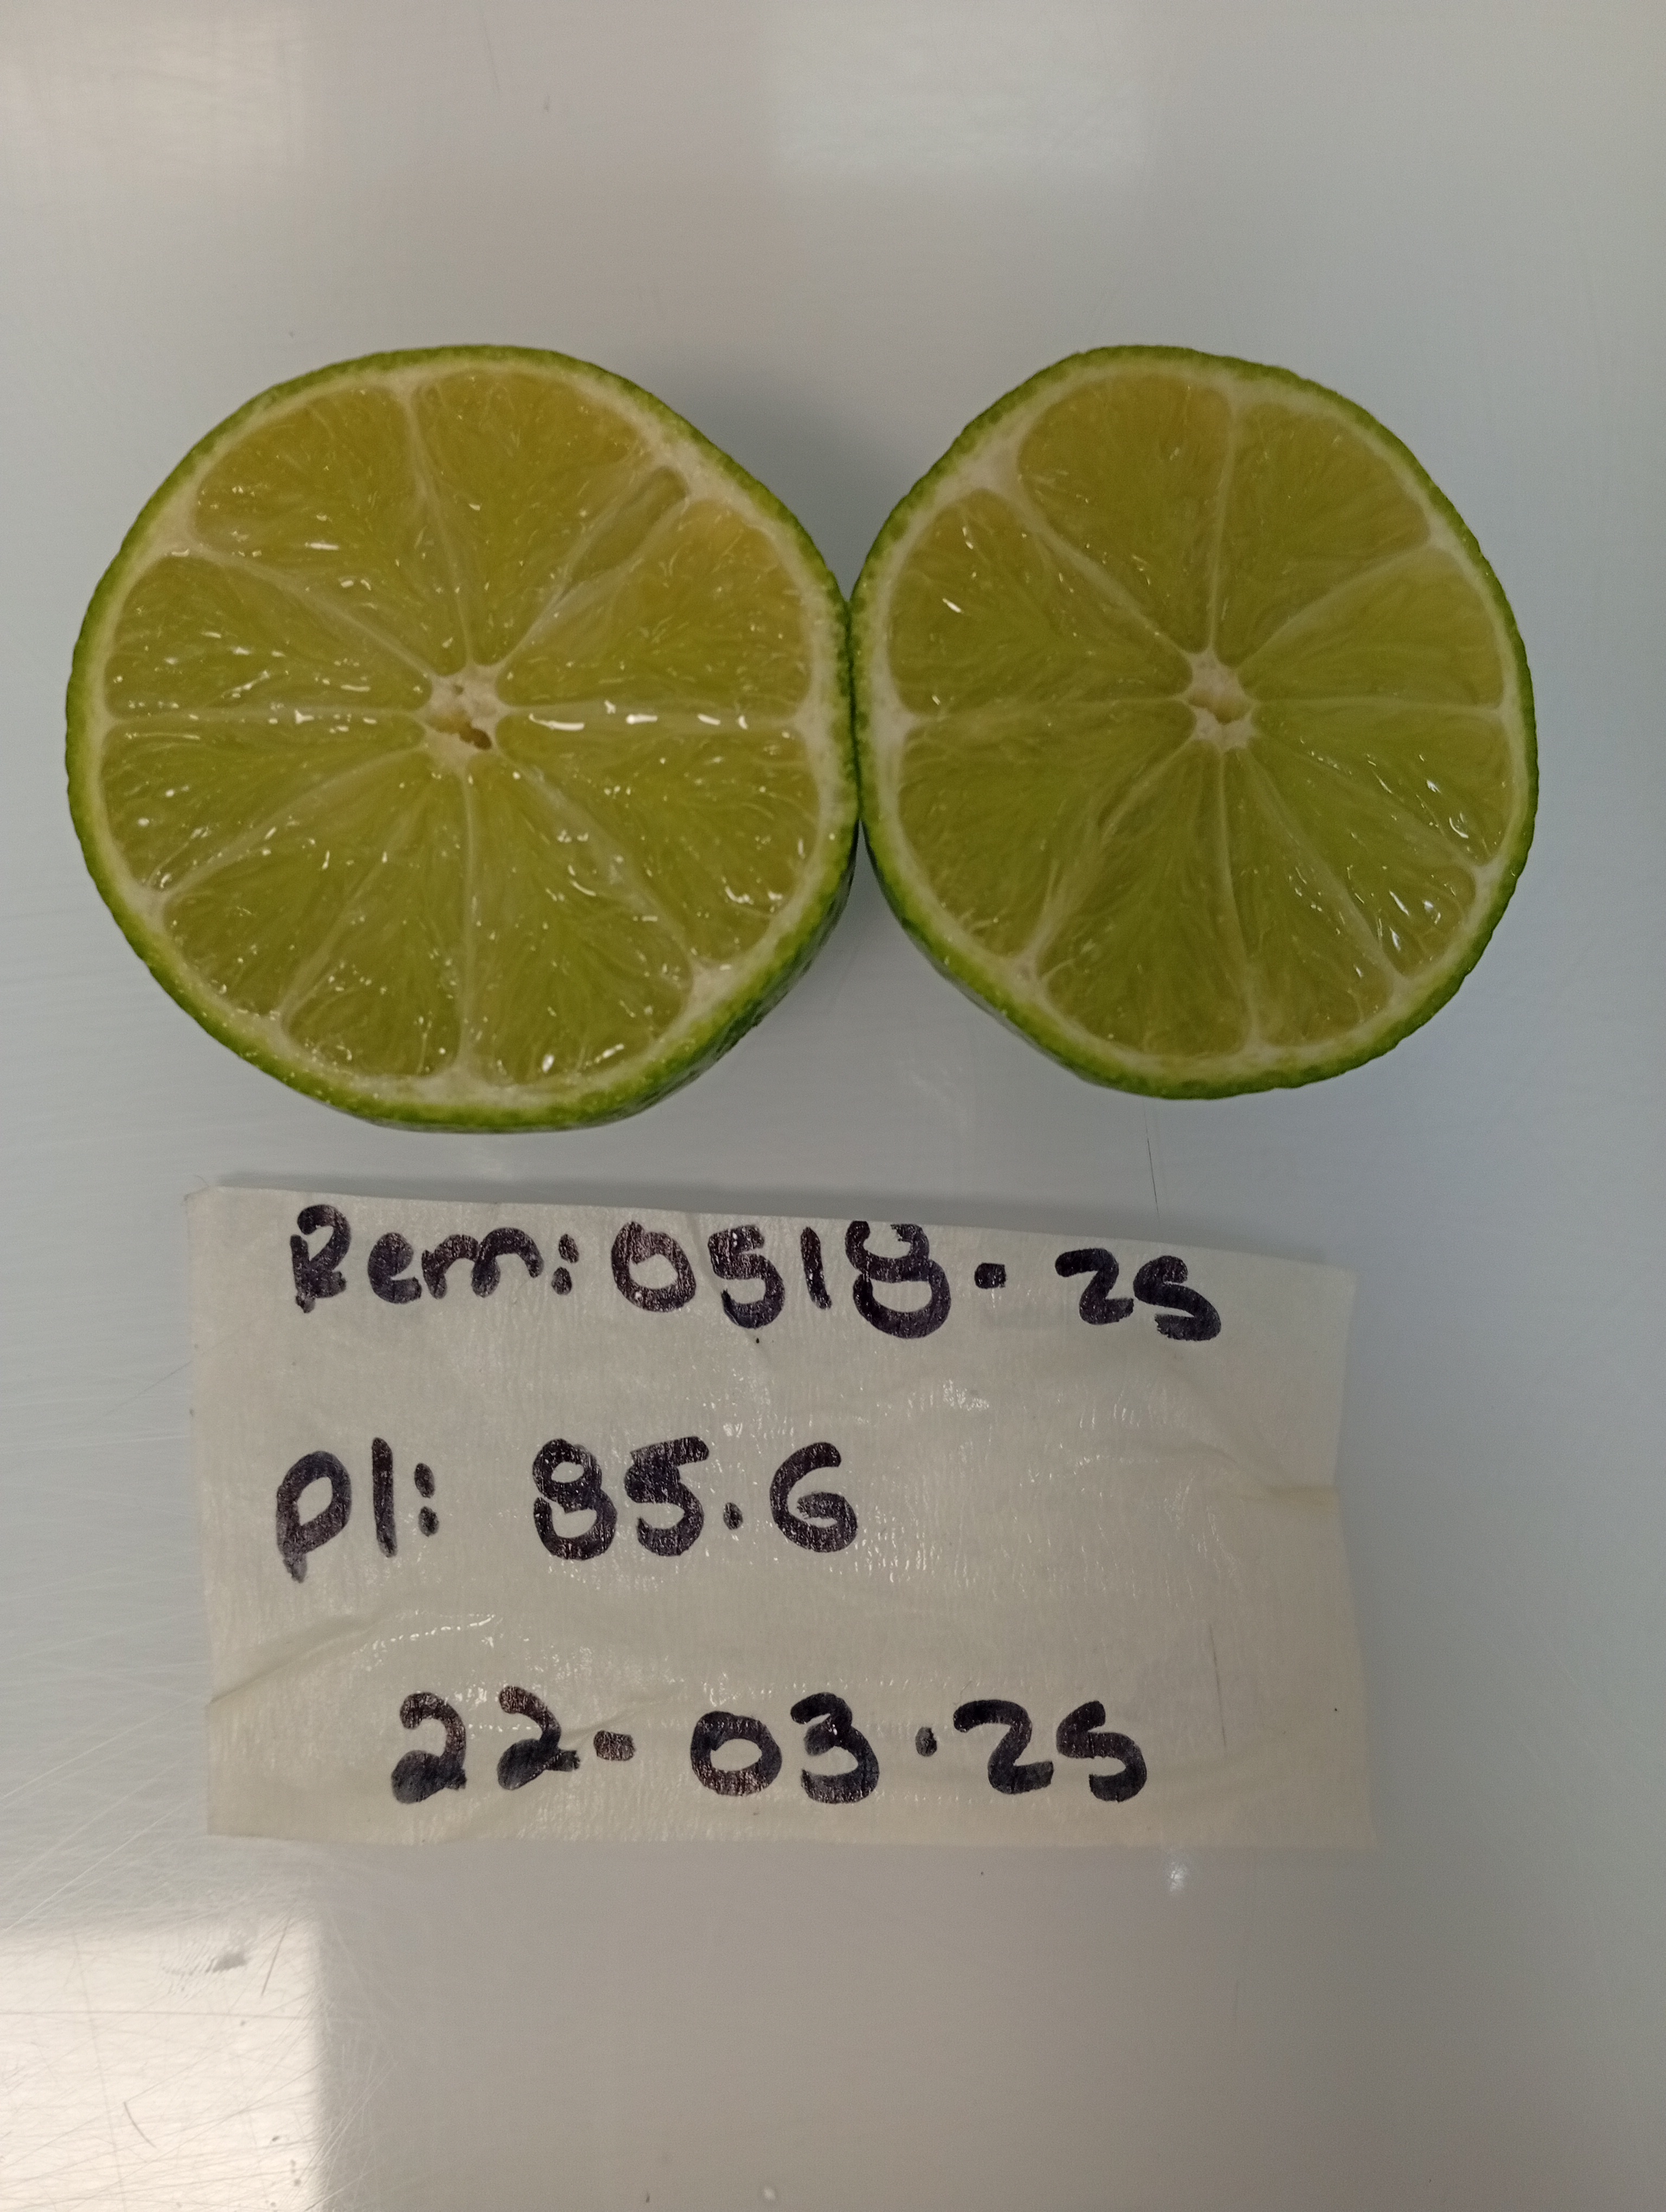 Rem: 0518-25
Pl: 85.6
22-03-25